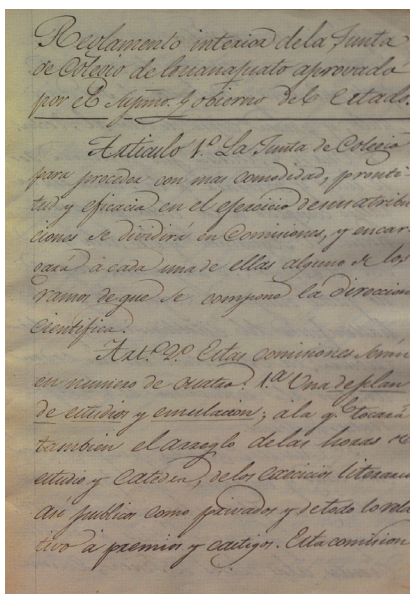 Reglamento interior de la Junta
de Colegio de Guanajuato aprovado
por el Supmo. Gobierno del Estado.
Articulo 1º. La Junta de Colegio
para proceder con mas comodidad, pronti
tud y eficacia en el ejercicio de sus atribu
ciones se dividirá en Comisiones, y encar
gará à cada una de ellas alguno de los
ramos de que se compone la direccion
cientifica.
Artº. 2º. Estas comisiones serán
en numero de cuatro. 1ª. Una de plan
de estudios y emulacion; á la q.e tocará
tambien el arreglo de las horas de
estudio y Catedra, de los exercicios literario
asi publicos como privados y de todo lo rela
tivo à premios y castigos. Esta comision